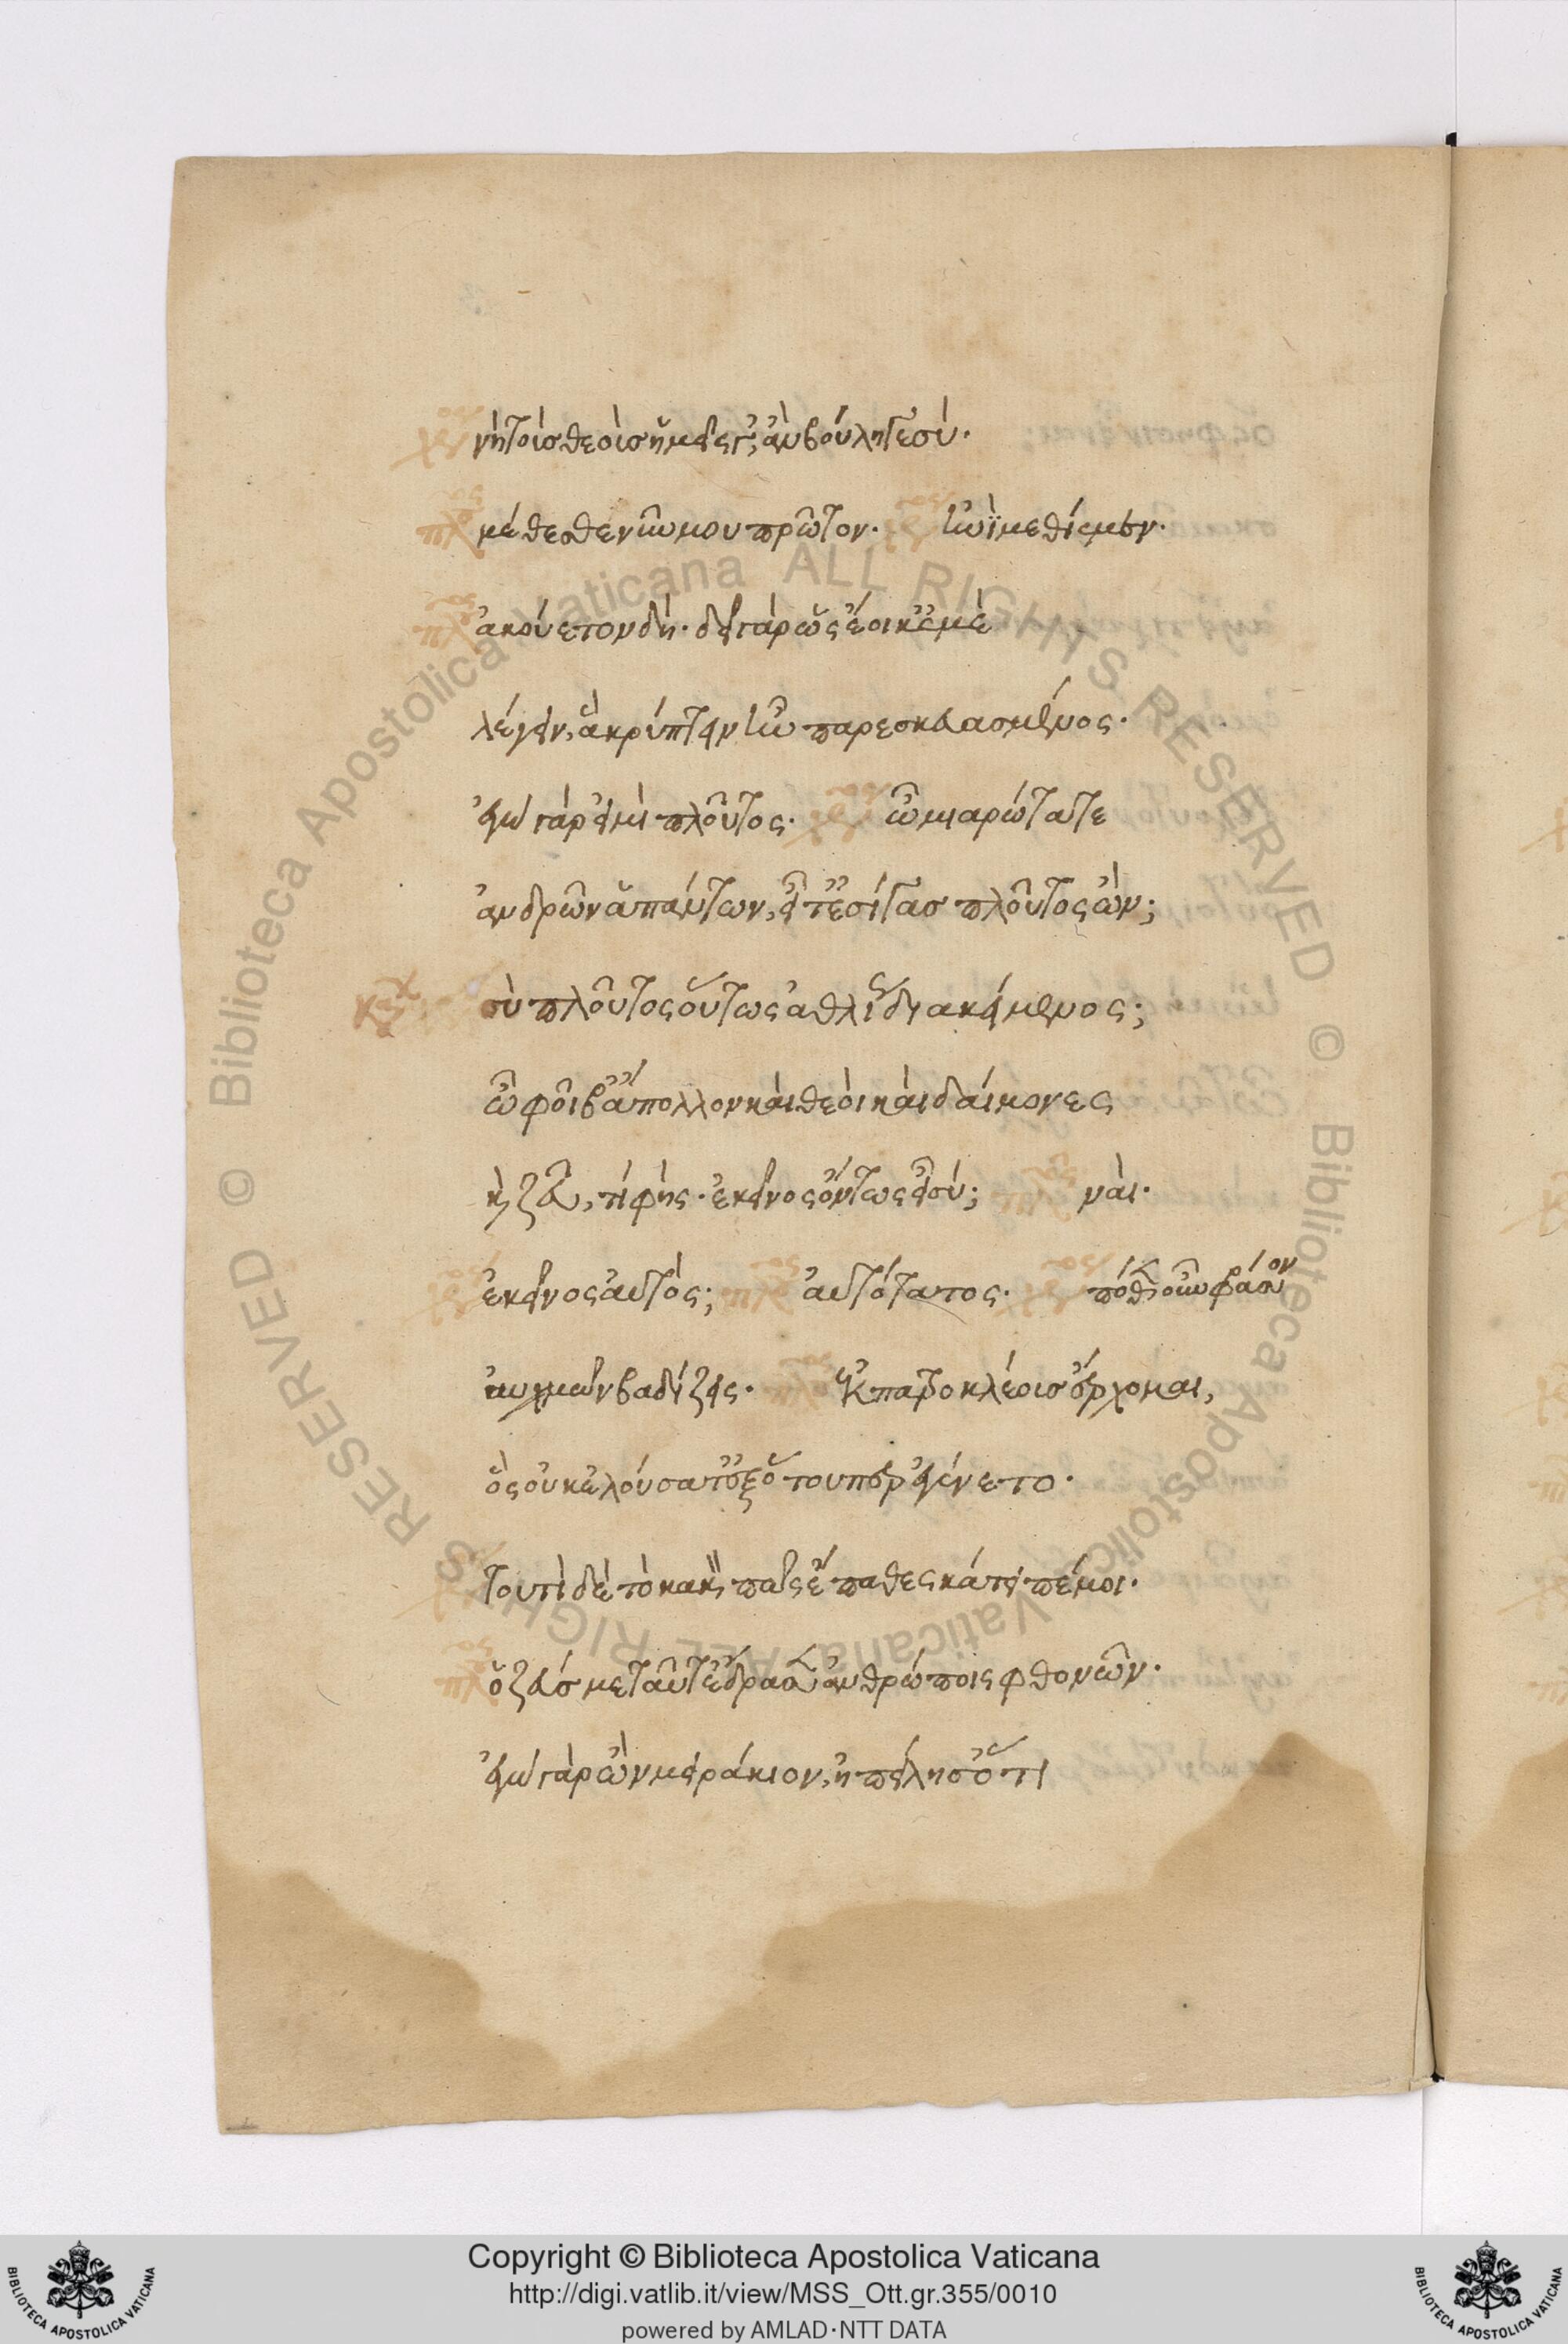 χρ νὴ τοὺς θεοὺς ἡμεῖς γ', ἂν βούλῃ γε σύ.
πλ μέθεσθε νῦν μου πρῶτον. χρ ἢν ἰμεθίεμεν.
πλ ἀκούετον δή. δεῖ γὰρ ὡς ἔοικέ με
λέγειν, ἃ κρύπτειν ἦν παρεσκευασμένος.
ἐγὼ γάρ εἰμι πλοῦτος. χρ ὦ μιαρώτατε
ἀνδρῶν ἁπάντων, εἶτ' ἐσίγας πλοῦτος ὤν;
κα σὺ πλοῦτος οὕτως ἀθλίως διακείμενος;
ὦ φοῖβ' ἄπολλον καὶ θεοὶ καὶ δαίμονες
καὶ ζεῦ, τί φής. ἐκεῖνος ὄντως εἶ σύ; πλ ναί.
χρ ἐκεῖνος αὐτός; πλ αὐτότατος. χρ πόθεν οὖν φράσον
αὐχμῶν βαδίζεις. πλ ἐκ πατροκλέους ἔρχομαι,
ὃς οὐκ ἐλούσατ' ἐξ ὅτουπερ ἐγένετο.
χρ τουτὶ δὲ τὸ κακὸν πῶς ἔπαθες κάτειπέ μοι.
πλ ὁ ζεύς με ταῦτ' ἔδρασεν ἀνθρώποις φθονῶν.
ἐγὼ γὰρ ὢν μειράκιον, ἠπείλησ' ὅτι
Copyright © Biblioteca Apostolica Vaticana
http://digi.vatlib.it/view/MSS_Ott.gr.355/0010
powered by AMLAD·NTT DATA